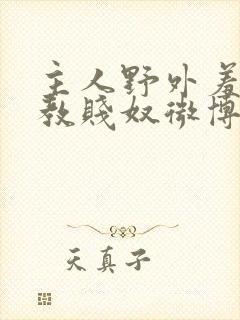 主人野外羞
教賤奴微博
天真子